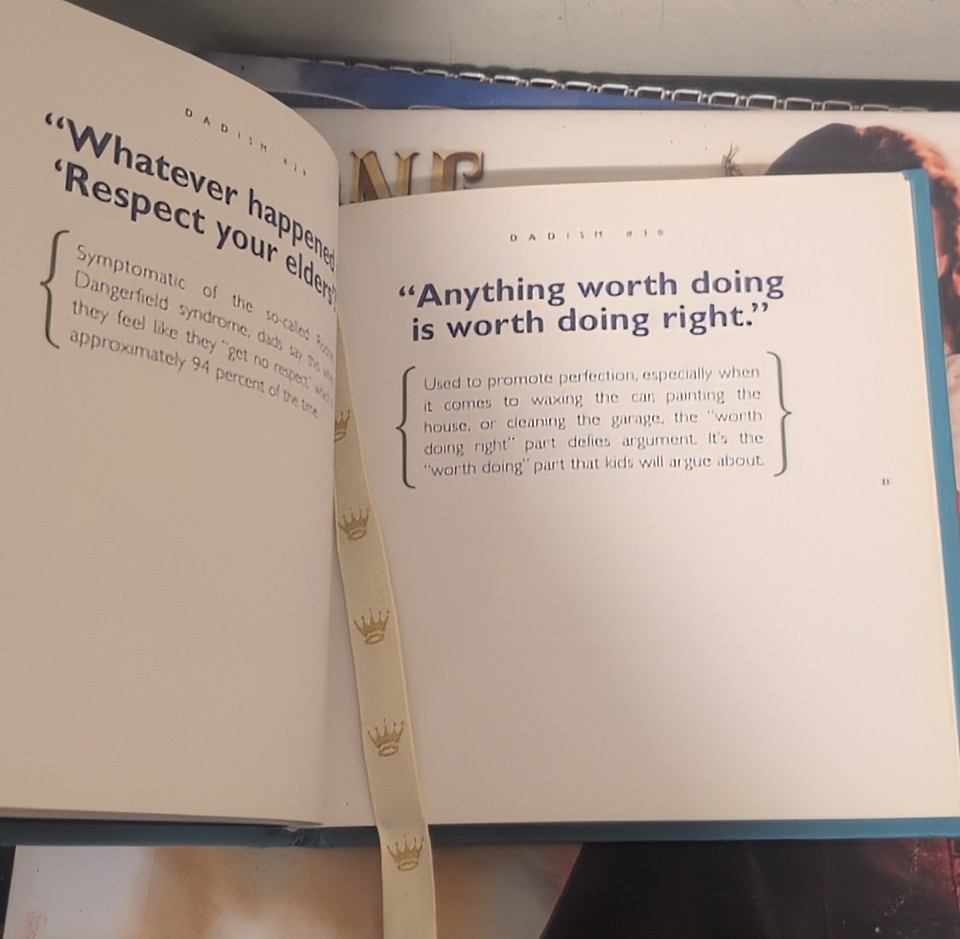 DADISM #29
“Whatever happened
‘Respect your elders’
Symptomatic of the so-called
Dangerfield syndrome, dads say this
they feel like they “get no respect,”
approximately 94 percent of the time.
NG
DADISM #30
“Anything worth doing
is worth doing right.”
Used to promote perfection, especially when
it comes to waxing the car, painting the
house, or cleaning the garage, the “worth
doing right” part defies argument. It’s the
“worth doing” part that kids will argue about.